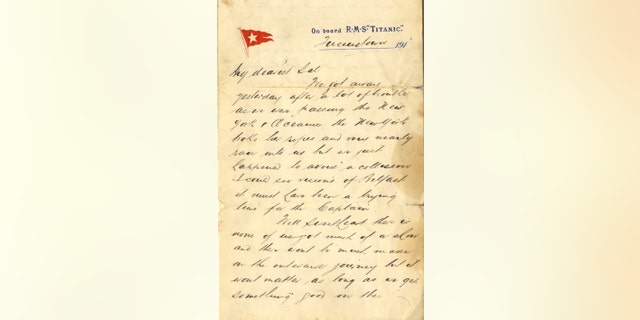 On board R·M·S "TITANIC."
Queenstown 191
My dearest Sal
We got away
yesterday after a lot of trouble
as we were passing the New
York & Oceanic the New York
broke her ropes and very nearly
ran into us but we just
happened to avoid a collision
I could see visions of Belfast
it must have been a trying
time for the Captain
Well Sweetheart there is
none of us got much of a show
and there wont be much made
on the outward journey but it
wont matter as long as we get
something good on the